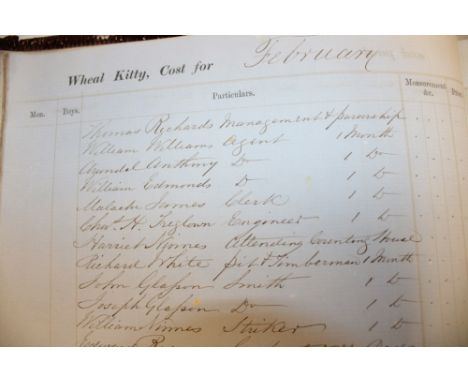 Wheal Kitty, Cost for February
Men. Days. Particulars. Measurement &c.
Thomas Richards Management & pursership
William Williams Agent 1 Month
Arundel Anthony Do 1 Do
William Edmonds D 1 D
Malachi James Clerk 1 D
Chas. H. Treglown Engineer 1 D
Harriet Attending Counting House
Richard White Pit & Timberman 1 Month
John Glasson Smith 1 D
Joseph Glasson Do 1 D
William Striker 1 D